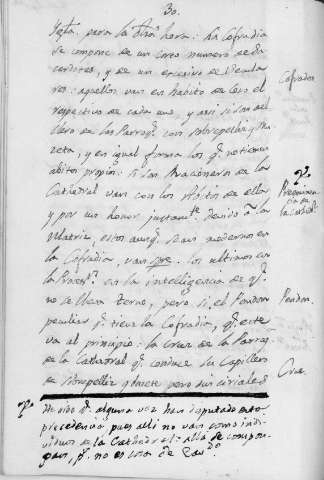 30.
para la dha hora: La Cofradia
se compone de un corto numero de Sa-
cerdotes, y de un excesivo de Secula-
res: aquellos van en habito de Coro el
respectivo de cada uno, y assi si son del
Clero de las Parroqs. con sobrepelliz, y Mu-
zeta, y en igual forma los q. no tienen
abitos propios: si son Racioneros de la
Cathedral van con los Abitos de ella
y por un honor justamte. devido à la
Matriz, estos aunq. sean modernos en
la Cofradia, van spre. los ultimos en
la Procesn. en la inteligencia de q.
no se lleva Terno, pero si el Pendon
peculiar q. tiene la Cofradia, q. este
va al principio: la Cruz de la Parroq.
de la Cathedral q. conduce su Capiller
de Sobrepelliz y bonete pero sin ciriales
Cofrades
Preeminen-
cia de
la Cathedl.
Pendon.
Cruz.
He oido q. alguna vez han disputado esta
precedencia pues alli no van como indi-
viduos de la Cathedral: allà se compon-
gan, q. no es cosa de